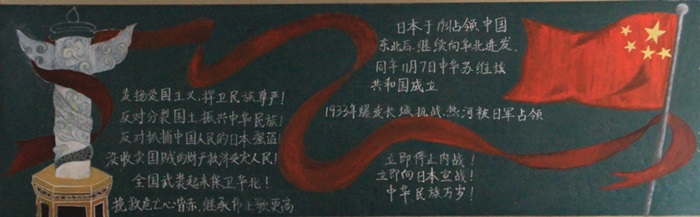 发扬爱国主义，捍卫民族尊严！
反对分裂国土，振兴中华民族！
反对抓捕中国人民的日本强盗！
没收卖国贼的财产救济受灾人民！
全国武装起来保卫华北！
挽救危亡心皆赤，继承伟业歌更高
日本于 占领中国
东北后，继续向华北进发，
同年11月7日中华苏维埃
共和国成立
1933年爆发长城抗战，热河被日军占领
立即停止内战！
立即向日本宣战！
中华民族万岁！